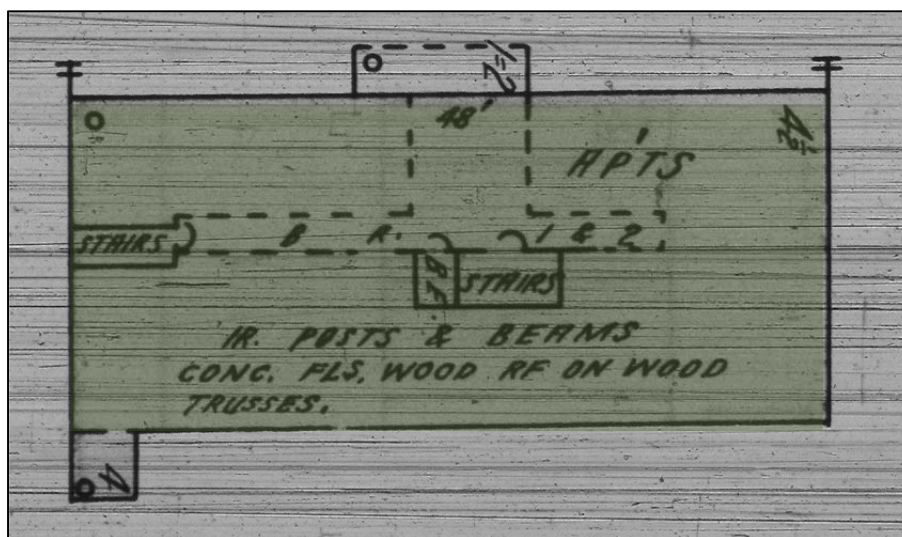 1=2
48'
4½
AP'TS
STAIRS
B R. 1 & 2
B.F.
STAIRS
IR. POSTS & BEAMS
CONC. FLS. WOOD RF ON WOOD
TRUSSES.
4